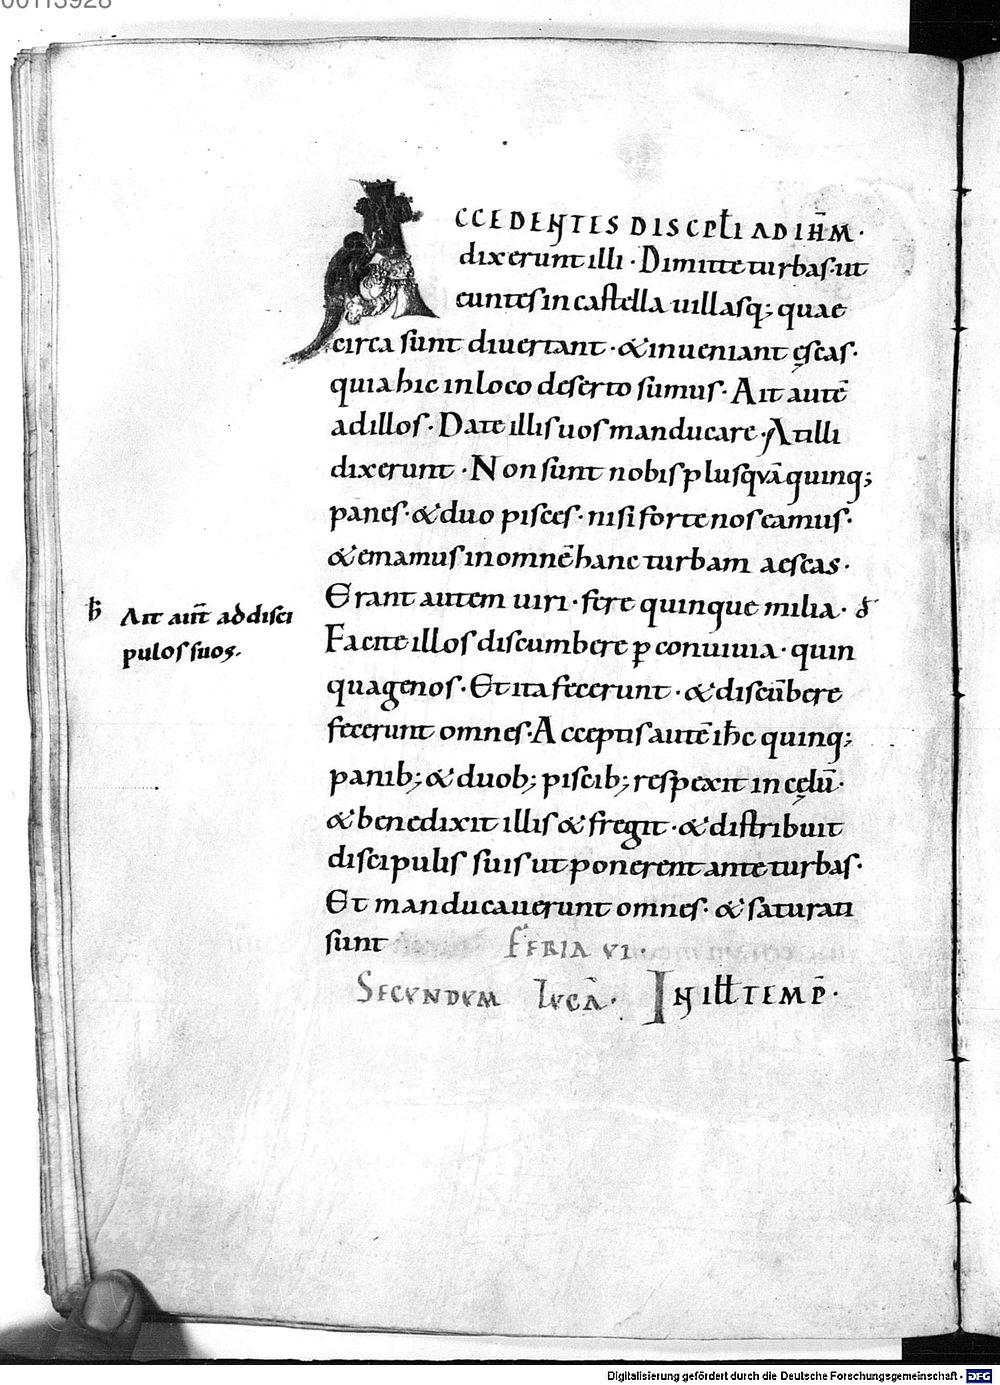 00113928
ACCEDENTES DISCPłI AD IH̄M·
dixerunt illi · Dimitte turbas· ut
euntes in castella uillasq; quae
circa sunt diuertant · & inueniant ęscas·
quia hic in loco deserto sumus· Ait autē
ad illos · Date illis uos manducare · At illi
dixerunt · Non sunt nobis plus quā quinq;
panes· & duo pisces· nisi forte nos eamus·
& emamus in omnē hanc turbam aescas·
Erant autem uiri · fere quinque milia ·
ƀ Ait aut̄ ad disci
pulos suos.
Facite illos discumbere ꝑ conuiuia · quin
quagenos· Et ita fecerunt · & discūbere
fecerunt omnes· Acceptis autē ihc̄ quinq;
panib; & duob; piscib; respexit in cęlū·
& benedixit illis & fregit · & distribuit
discipulis suis ut ponerent ante turbas·
Et manducauerunt omnes· & saturati
sunt FERIA VI·
SECVNDVM LVCĀ· IN ILŁ TEMP̄·
Digitalisierung gefördert durch die Deutsche Forschungsgemeinschaft - DFG